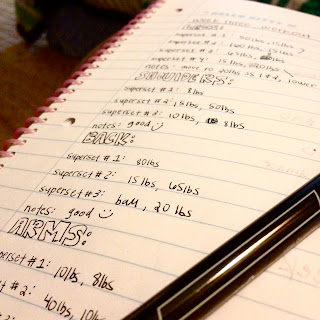 WEEK THREE
superset #1: 50lbs, 15lbs
superset #2:
superset #3:
superset #4: 15lbs,
notes: move to 20lbs is 1+2, lower
SHOULDERS:
superset #1: 8lbs
superset #2: 15lbs, 50lbs
superset #3: 10lbs, 8lbs
notes: good
BACK:
superset #1: 80lbs
superset #2: 15lbs, 65lbs
superset #3: ball, 20lbs
notes: good
ARMS:
superset #1: 10lbs, 8lbs
#2: 40lbs, 10lbs